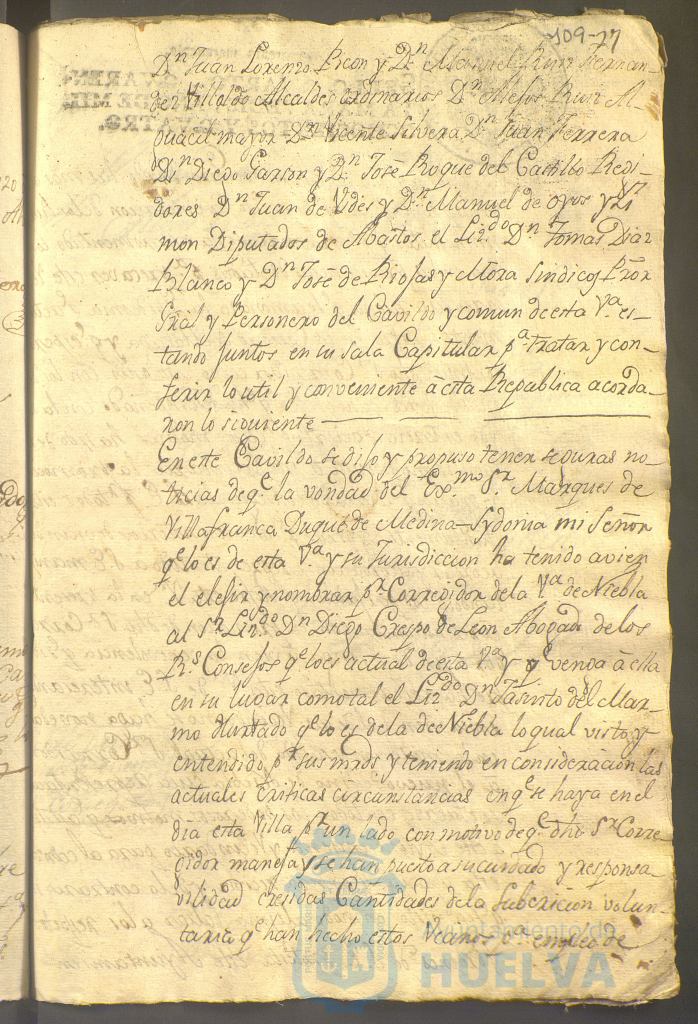 109-77
Dn. Juan Lorenzo Rcon y Dn. Manuel Ruiz Hernan-
dez Villoldo Alcaldes ordinarios Dn. Alejos Ruiz Al-
guacil mayor Dn. Vicente Silvera Dn. Juan Ferrera
Dn. Diego Garzon y Dn. José Roque del Castillo Regi-
dores Dn. Juan de Vides y Dn. Manuel de oyos y Li
mon Diputados de Abastos el Lizdo. Dn. Tomas Diaz
Blanco y Dn. José de Riojas y Mora Sindicos Pror
Gral y Personero del Cavildo y comun de esta Va. es-
tando juntos en su sala Capitular pa. tratar y con-
ferir lo util y conveniente à esta Republica acorda-
ron lo siguiente
En este Cavildo se dijo y propuso tener seguras no-
ticias de qe. la vondad del Exmo. Sr. Marques de
Villafranca Duque de Medina-Sydonia mi Señor
qe. lo es de esta Va. y su Jurisdiccion ha tenido a vien
el elejir y nombrar pr. Corregidor de la Va. de Niebla
al Sr. Lizdo. Dn. Diego Crespo de Leon Abogado de los
Rs. Consejos qe. lo es actual de esta Va. y qe. venga à ella
en su lugar como tal el Lizdo. Dn. Jasinto del Mar-
mo Hurtado qe. lo es de la de Niebla lo qual visto y
entendido pr. sus mrds y teniendo en consideracion las
actuales criticas circunstancias en qe. se haya en el
dia esta Villa pr. un lado con motivo de qe. dho Sr. Corre
gidor maneja y se han puesto a su cuidado y responsa
vilidad cresidas Cantidades de la subcricion volun-
taria qe. han hecho estos Vecinos pa. empleo de
Ayuntamiento de
HUELVA